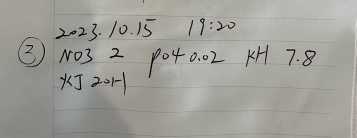 2023.10.15 19:20
③ NO3 2 PO4 0.02 KH 7.8
灯 20H